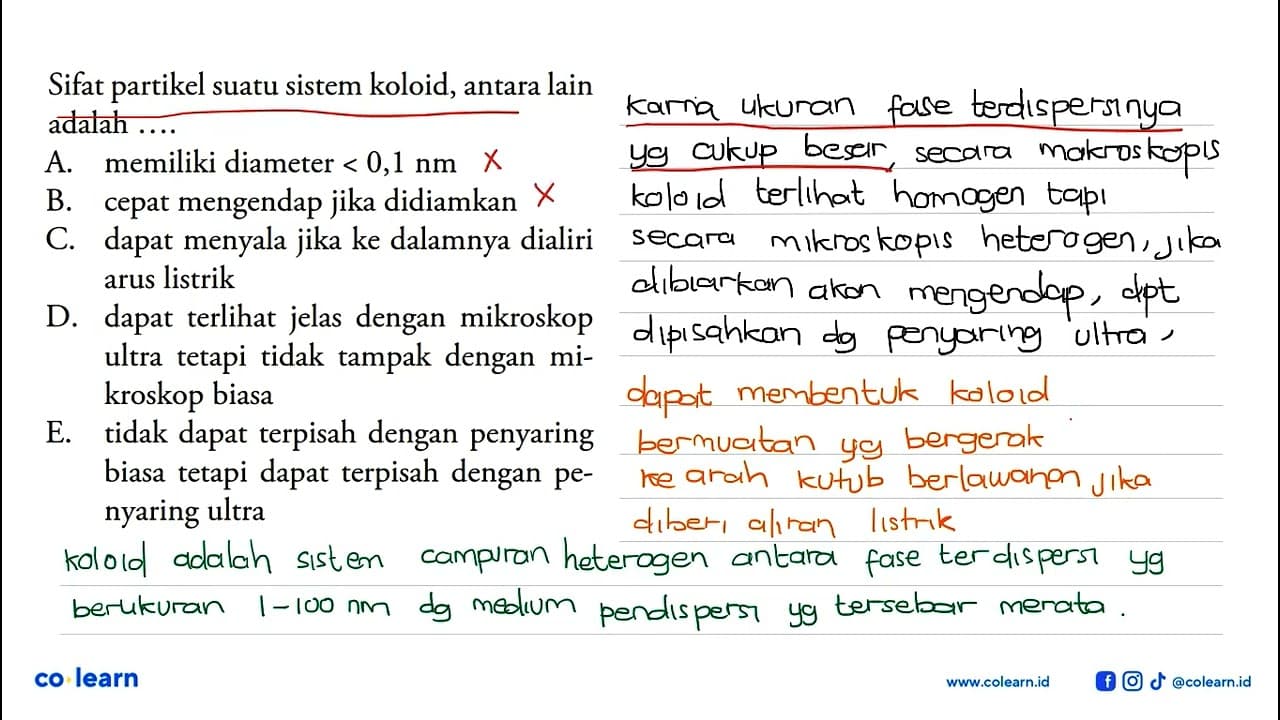 Sifat partikel suatu sistem koloid, antara lain
adalah ....
A. memiliki diameter < 0,1 nm X
B. cepat mengendap jika didiamkan X
C. dapat menyala jika ke dalamnya dialiri
arus listrik
D. dapat terlihat jelas dengan mikroskop
ultra tetapi tidak tampak dengan mi-
kroskop biasa
E. tidak dapat terpisah dengan penyaring
biasa tetapi dapat terpisah dengan pe-
nyaring ultra
karna ukuran fase terdispersinya
yg cukup besar, secara makroskopis
koloid terlihat homogen tapi
secara mikroskopis heterogen, jika
dibiarkan akan mengendap, dpt
dipisahkan dg penyaring ultra,
dapat membentuk koloid
bermuatan yg bergerak
ke arah kutub berlawanan jika
diberi aliran listrik
koloid adalah sistem campuran heterogen antara fase terdispersi yg
berukuran 1-100 nm dg medium pendispersi yg tersebar merata.
co learn
www.colearn.id
@colearn.id